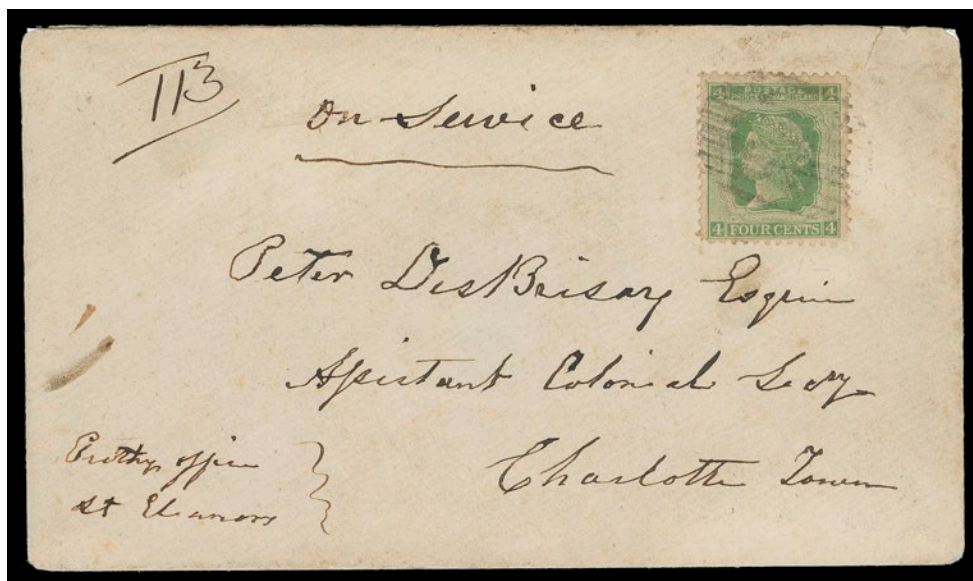 113
On Service
4 POSTAGE 4
PRINCE EDWARD ISLAND
4 FOUR CENTS 4
Peter DesBrisay Esquire
Assistant Colonial Secy
Charlotte Town
Prothy office
St Eleanors